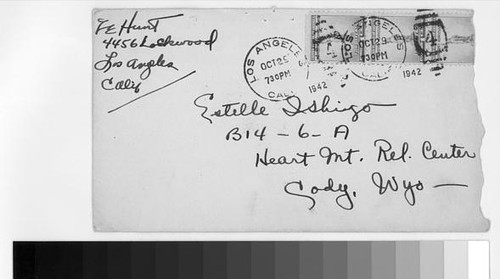 E E Hunt
4456 Lockwood
Los Angeles
Calif
LOS ANGELES
OCT 29
7 30 PM
CALIF.
1942
LOS ANGELES
OCT 29
7 30 PM
CALIF.
1942
4
Estelle Ishigo
B14-6-A
Heart Mt. Rel. Center
Cody, Wyo